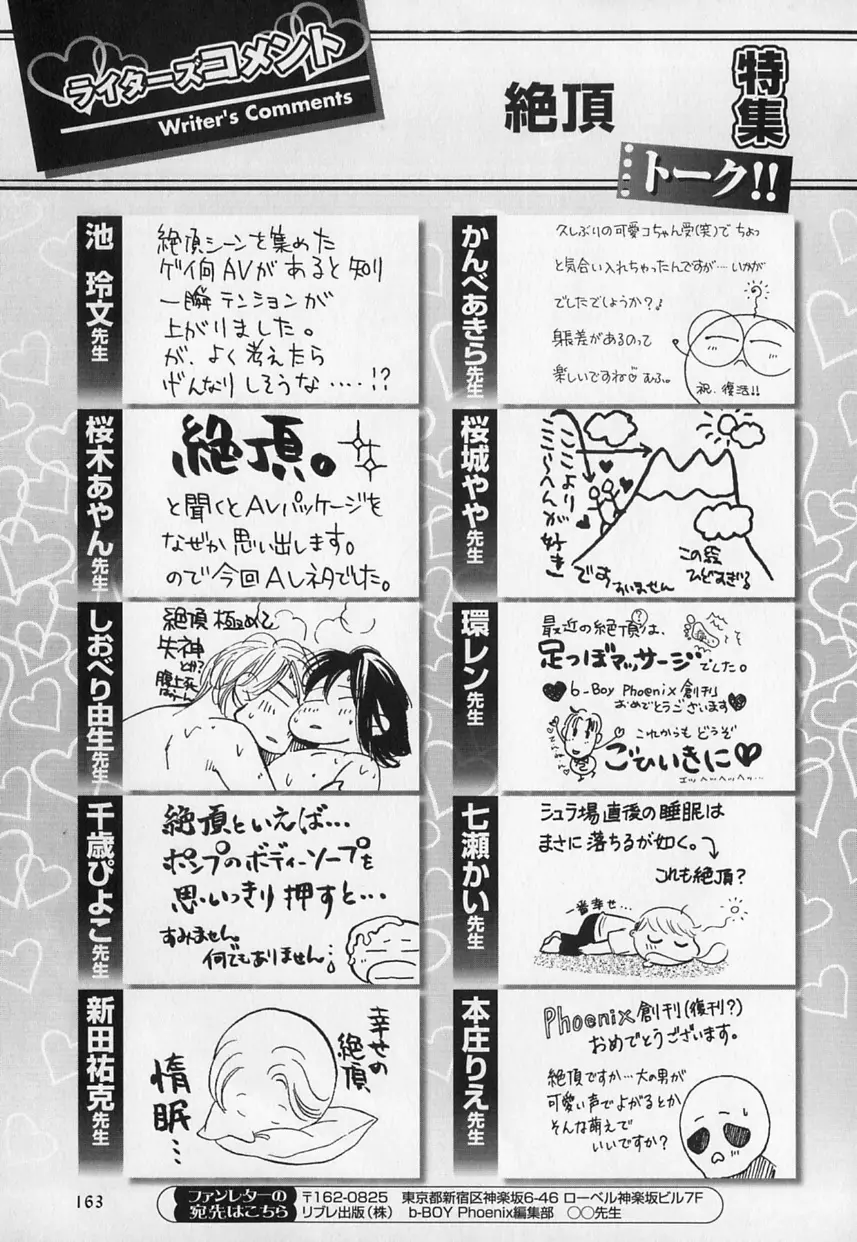 ライターズコメント
Writer's Comments
特集
絶頂
トーク!!
かんべあきら先生
久しぶりの可愛コちゃん受(笑)で ちょっ
と気合い入れちゃったんですが…いかが
でしたでしょうか?♪
身長差があるのって
楽しいですね♡ むふ。
祝・復活!!
池 玲文先生
絶頂シーンを集めた
ゲイ向AVがあると知り
一瞬テンションが
上がりました。
が、よく考えたら
げんなりしそうな……!?
桜城やや先生
ここより
ここらへんが
好き
です
すいません
この絵
ひどすぎる
桜木あやん先生
絶頂。
と聞くとAVパッケージを
なぜか思い出します。
ので今回AVネタでした。
環レン先生
最近の絶頂は、
?
痛い
足つぼマッサージでした。
b-Boy Phoenix 創刊
おめでとうございます
これからも どうぞ
ごひいきに♥
エッヘヘッヘヘッヘ…
しおべり由生先生
絶頂 極めて
失神
とか?
腹上死
七瀬かい先生
シュラ場直後の睡眠は
まさに落ちるが如く。
これも絶頂?
一番幸せ…
千歳ぴよこ先生
絶頂といえば…
ポンプのボディーソープを
思いっきり押すと…
すみません。
何でもありません…;
本庄りえ先生
Phoenix創刊(復刊?)
おめでとうございます。
絶頂ですか…大の男が
可愛い声でよがるとか
そんな萌えで
いいですか?
新田祐克先生
幸せの
絶頂
惰眠…
163
ファンレターの
宛先はこちら
〒162-0825 東京都新宿区神楽坂6-46 ローベル神楽坂ビル7F
リブレ出版(株) b-BOY Phoenix編集部 ○○先生